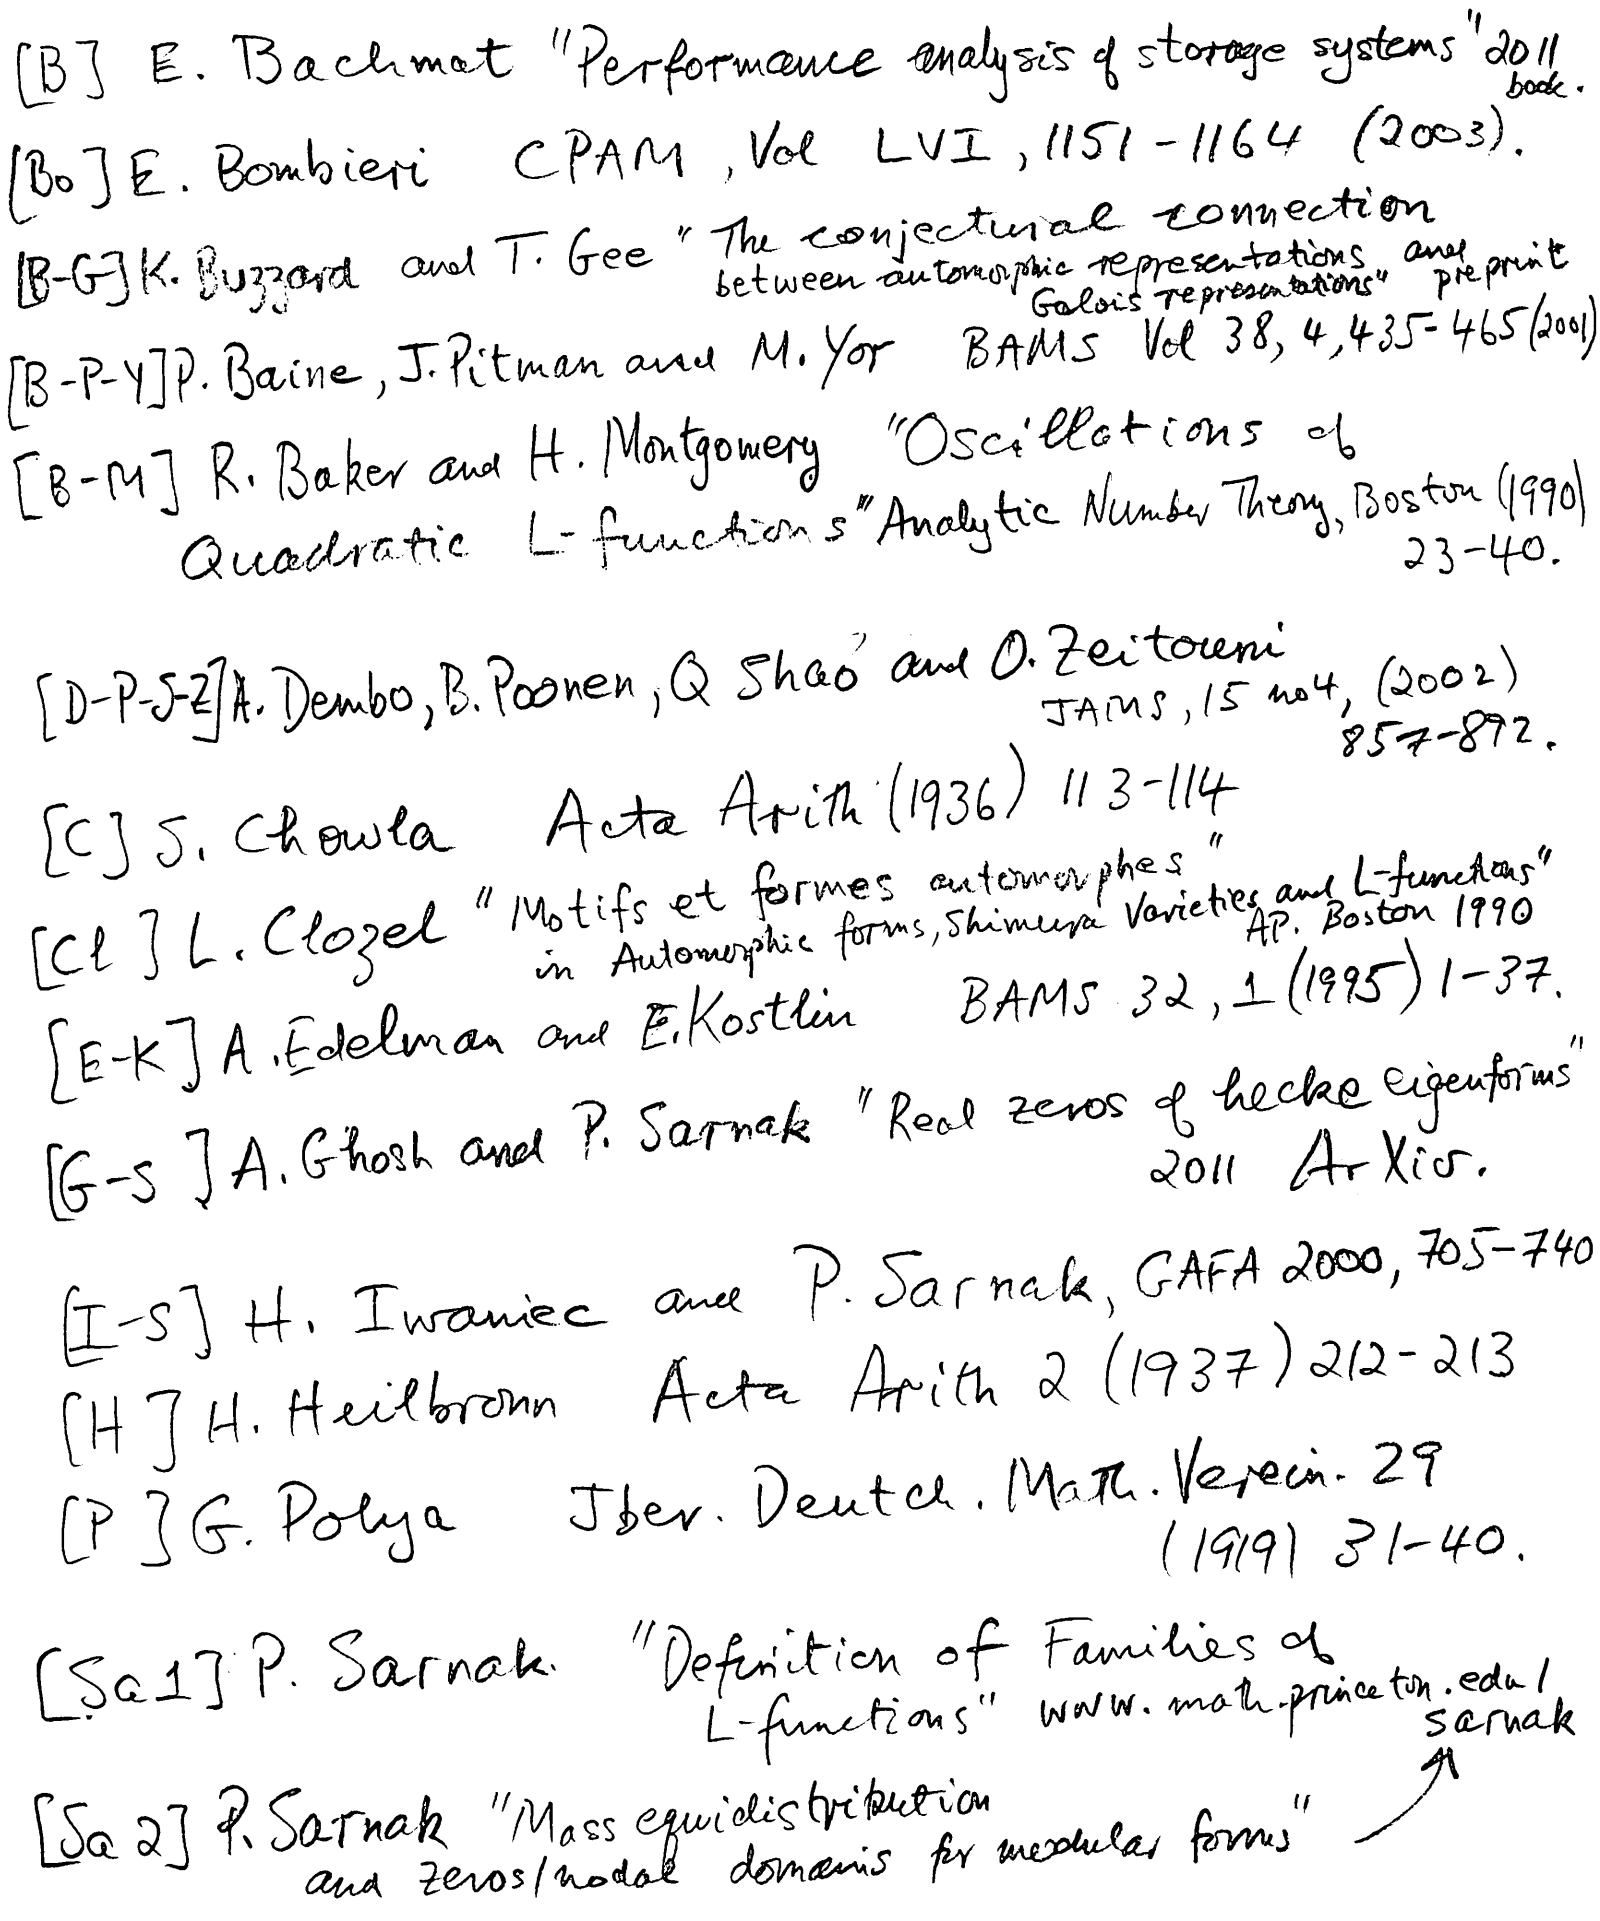 [B] E. Bachmat "Performance analysis of storage systems" 2011
book.
[Bo] E. Bombieri CPAM, Vol LVI, 1151-1164 (2003).
[B-G] K. Buzzard and T. Gee "The conjectural connection
between automorphic representations and
Galois representations" preprint
[B-P-Y] P. Baine, J. Pitman and M. Yor BAMS Vol 38, 4, 435-465 (2001)
[B-M] R. Baker and H. Montgomery "Oscillations of
Quadratic L-functions" Analytic Number Theory, Boston (1990)
23-40.
[D-P-S-Z] A. Dembo, B. Poonen, Q Shao and O. Zeitouni
JAMS, 15 no4, (2002)
857-892.
[C] S. Chowla Acta Arith (1936) 113-114
[Cl] L. Clozel "Motifs et formes automorphes"
in Automorphic forms, Shimura Varieties and L-functions"
AP. Boston 1990
[E-K] A. Edelman and E. Kostlin BAMS 32, 1 (1995) 1-37.
[G-S] A. Ghosh and P. Sarnak "Real zeros of hecke eigenforms"
2011 ArXiv.
[I-S] H. Iwaniec and P. Sarnak, GAFA 2000, 705-740
[H] H. Heilbronn Acta Arith 2 (1937) 212-213
[P] G. Polya Jber. Deutch. Math. Verein. 29
(1919) 31-40.
[Sa 1] P. Sarnak. "Definition of Families of
L-functions" www.math.princeton.edu/
sarnak
[Sa 2] P. Sarnak "Mass equidistribution
and zeros/nodal domains for modular forms"